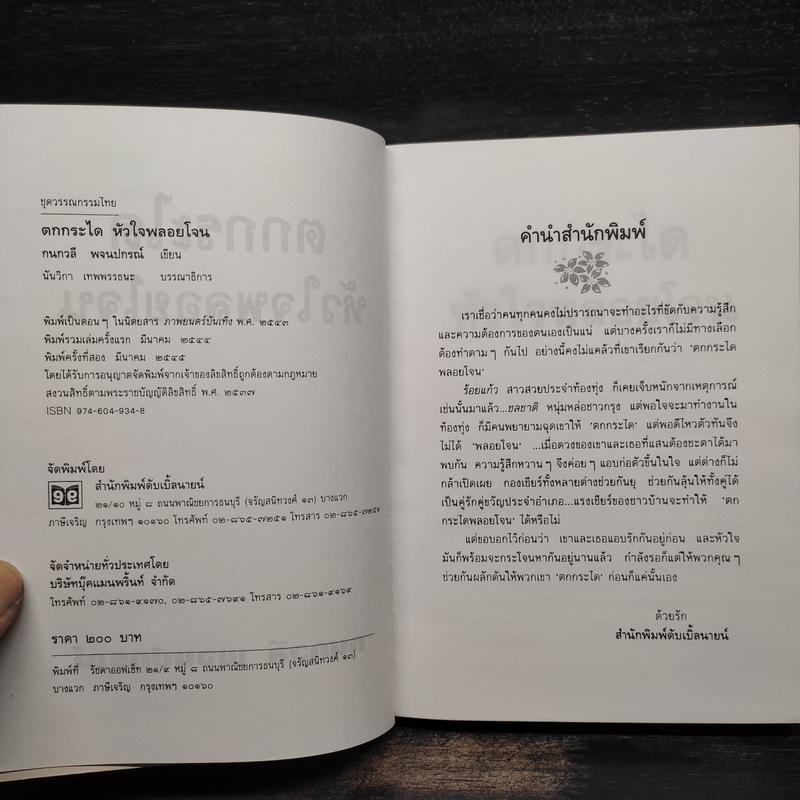 ชุดวรรณกรรมไทย
ตกกระได หัวใจพลอยโจน
กนกวลี พจนปกรณ์ เขียน
นันวิกา เทพพรรธนะ บรรณาธิการ
พิมพ์เป็นตอนๆ ในนิตยสาร ภาพยนตร์บันเทิง พ.ศ. ๒๕๔๓
พิมพ์รวมเล่มครั้งแรก มีนาคม ๒๕๔๔
พิมพ์ครั้งที่สอง มีนาคม ๒๕๔๕
โดยได้รับการอนุญาตจัดพิมพ์จากเจ้าของลิขสิทธิ์ถูกต้องตามกฎหมาย
สงวนสิทธิ์ตามพระราชบัญญัติลิขสิทธิ์ พ.ศ. ๒๕๓๗
ISBN 974-604-934-8
จัดพิมพ์โดย
สำนักพิมพ์ดับเบิ้ลนายน์
๒๑/๑๐ หมู่ ๘ ถนนพาณิชยการธนบุรี (จรัญสนิทวงศ์ ๑๓) บางแวก
ภาษีเจริญ กรุงเทพฯ ๑๐๑๖๐ โทรศัพท์ ๐๒-๘๖๕-๗๒๕๑ โทรสาร ๐๒-๘๖๕-๗๒๕๑
จัดจำหน่ายทั่วประเทศโดย
บริษัทบุ๊คแมนพริ้นท์ จำกัด
โทรศัพท์ ๐๒-๘๖๑-๙๑๗๐, ๐๒-๘๖๕-๗๖๙๑ โทรสาร ๐๒-๘๖๑-๙๑๖๙
ราคา ๒๐๐ บาท
พิมพ์ที่ รัชดาออฟเซ็ท ๒๑/๙ หมู่ ๘ ถนนพาณิชยการธนบุรี (จรัญสนิทวงศ์ ๑๓)
บางแวก ภาษีเจริญ กรุงเทพฯ ๑๐๑๖๐
คำนำสำนักพิมพ์
เราเชื่อว่าคนทุกคนคงไม่ปรารถนาจะทำอะไรที่ขัดกับความรู้สึก
และความต้องการของตนเองเป็นแน่ แต่บางครั้งเราก็ไม่มีทางเลือก
ต้องทำตามๆ กันไป อย่างนี้คงไม่แคล้วที่เขาเรียกกันว่า 'ตกกระได
พลอยโจน'
ร้อยแก้ว สาวสวยประจำท้องทุ่ง ก็เคยเจ็บหนักจากเหตุการณ์
เช่นนั้นมาแล้ว...ชลชาติ หนุ่มหล่อชาวกรุง แต่พอใจจะมาทำงานใน
ท้องทุ่ง ก็มีคนพยายามฉุดเขาให้ 'ตกกระได' แต่พอดีไหวตัวทันจึง
ไม่ได้ 'พลอยโจน' ...เมื่อดวงของเขาและเธอที่แสนต้องชะตาได้มา
พบกัน ความรู้สึกหวานๆ จึงค่อยๆ แอบก่อตัวขึ้นในใจ แต่ต่างก็ไม่
กล้าเปิดเผย กองเชียร์ทั้งหลายต่างช่วยกันยุ ช่วยกันลุ้นให้ทั้งคู่ได้
เป็นคู่รักคู่ขวัญประจำอำเภอ...แรงเชียร์ของชาวบ้านจะทำให้ 'ตก
กระไดพลอยโจน' ได้หรือไม่
แต่ขอบอกไว้ก่อนว่า เขาและเธอแอบรักกันอยู่ก่อน และหัวใจ
มันก็พร้อมจะกระโจนหากันอยู่นานแล้ว กำลังรอก็แต่ให้พวกคุณๆ
ช่วยกันผลักดันให้พวกเขา 'ตกกระได' ก่อนก็แค่นั้นเอง
ด้วยรัก
สำนักพิมพ์ดับเบิ้ลนายน์